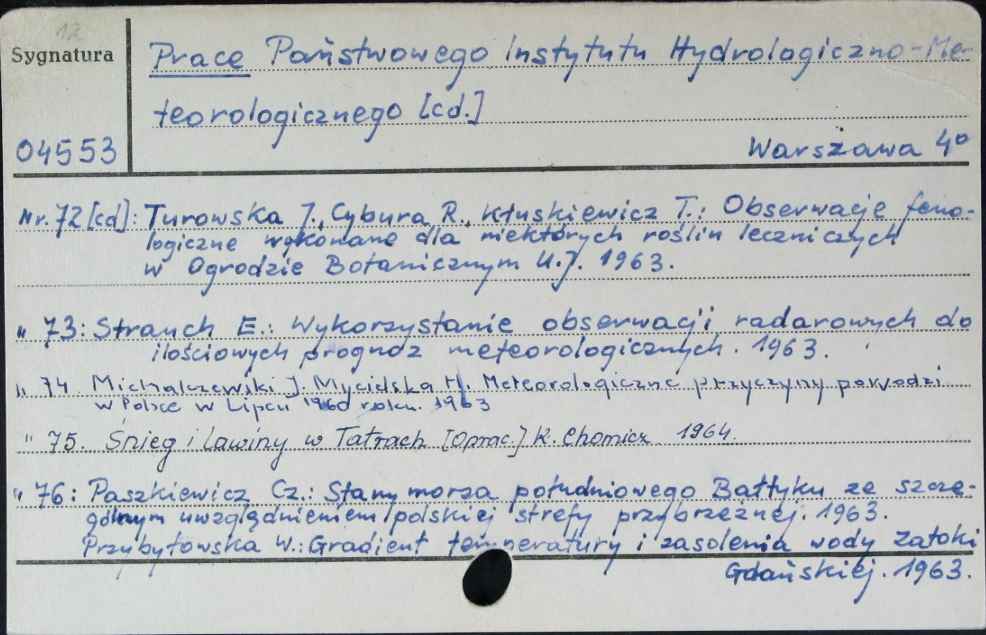 12
Sygnatura
Prace Państwowego Instytutu Hydrologiczno-Me-
teorologicznego [cd.]
04553
Warszawa 4o
Nr. 72 [cd]: Turowska J., Cybura R., Kłuskiewicz T.: Obserwacje feno-
logiczne wykonane dla niektórych roślin leczniczych
w Ogrodzie Botanicznym U.J. 1963.
" 73: Strauch E.: Wykorzystanie obserwacji radarowych do
ilościowych prognoz meteorologicznych. 1963.
" 74 Michalczewski J. Mycielska H. Meteorologiczne przyczyny powodzi
w Polsce w Lipcu 1960 roku. 1963
" 75. Śnieg i lawiny w Tatrach [Oprac.] K. Chomicz 1964.
" 76: Paszkiewicz Cz.: Stany morza południowego Bałtyku ze szcze-
gólnym uwzględnieniem polskiej strefy przybrzeżnej. 1963.
Przybyłowska W.: Gradient temperatury i zasolenia wody Zatoki
Gdańskiej. 1963.